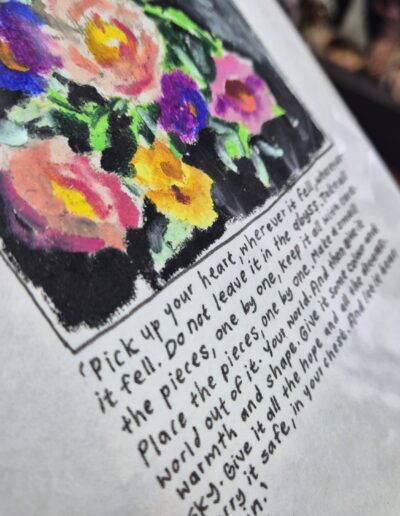 'Pick up your heart wherever it fell, however
it fell. Do not leave it in the abyss. Take all
the pieces, one by one, keep it all with care.
Place the pieces, one by one. Make a small
world out of it. Your world. And then give it
warmth and shape. Give it some color and
sky. Give it all the hope and all the dreams.
rry it safe, in your chest. And let it
n.'